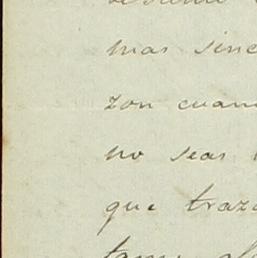 mas sinc
zon cuan
no seas
que traz